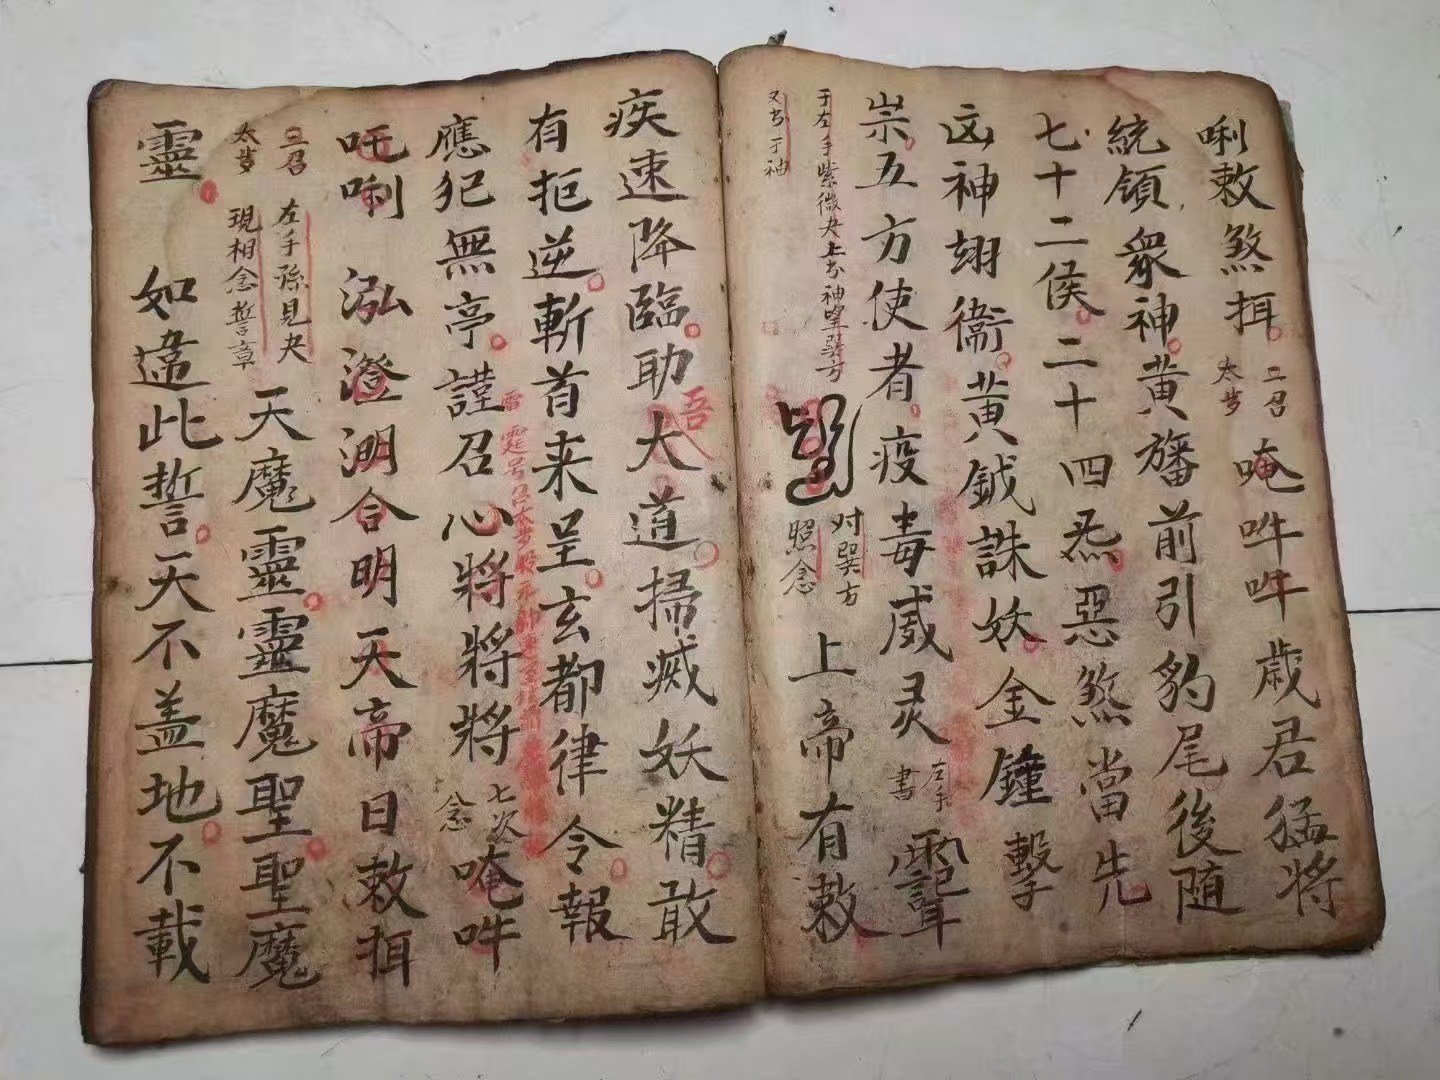 唎敕煞挕。二召太岁唵吽吽歳君猛将
統領衆神。黄旛前引豹尾後随
七十二侯。二十四炁。惡煞當先
这神翊衞。黄鉞誅妖。金鐘擊
祟。五方使者。疫毒威灵左手書
于左手紫微夬上
又书于袖
对巽方照念上帝有敕
疾速降臨。助吾大道。掃滅妖精。敢
有拒逆。斬首来呈。玄都律令。報
應犯無亭。謹召心將將將七次念唵吽
吒唎泓澄渊合明天帝日敕挕
三召左手
太岁現相念誓章天魔靈靈魔聖聖魔
靈。如違此誓。天不盖地。不載